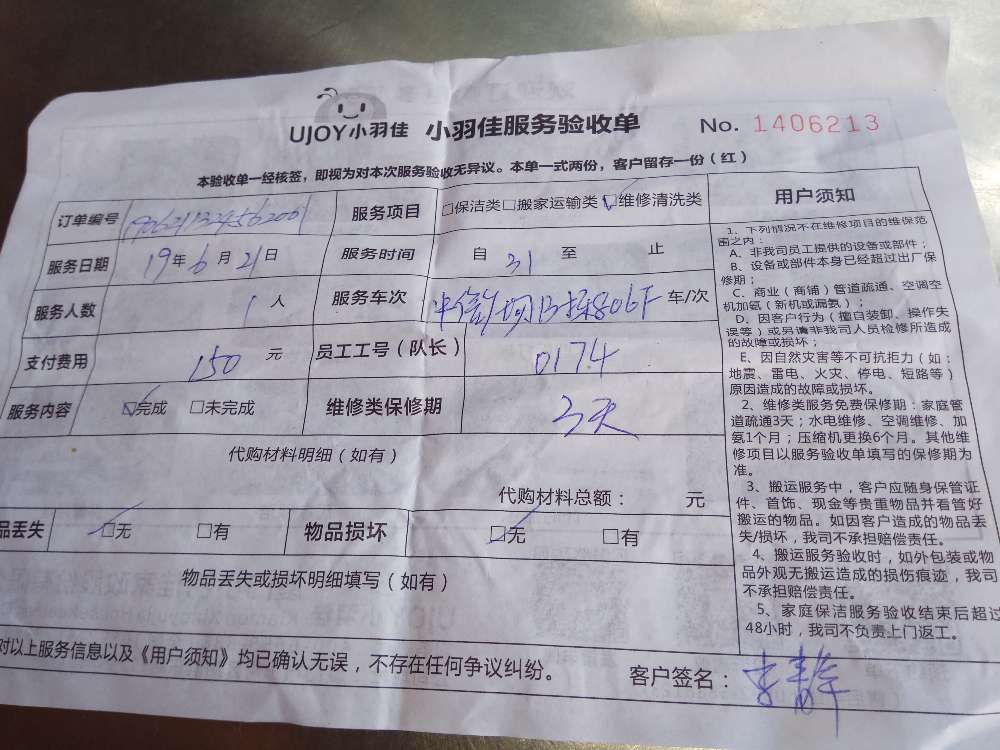 UJOY小羽佳 小羽佳服务验收单 No. 1406213
本验收单一经核签，即视为对本次服务验收无异议。本单一式两份，客户留存一份（红）
订单编号 服务项目 □保洁类□搬家运输类☑维修清洗类
服务日期 19年6月21日 服务时间 自 31 至 止
服务人数 1人 服务车次 车/次
支付费用 150 元 员工工号（队长） 0174
服务内容 ☑完成 □未完成 维修类保修期 3天
代购材料明细（如有）
代购材料总额： 元
品丢失 ☑无 □有 物品损坏 ☑无 □有
物品丢失或损坏明细填写（如有）
对以上服务信息以及《用户须知》均已确认无误，不存在任何争议纠纷。
客户签名：
用户须知
1、下列情况不在维修项目的维保范
围之内：
A、非我司员工提供的设备或部件；
B、设备或部件本身已经超过出厂保
修期；
C、商业（商铺）管道疏通、空调空
机加氨（新机或漏氨）；
D、因客户行为（擅自装卸、操作失
误等）或另请非我司人员检修所造成
的故障或损坏；
E、因自然灾害等不可抗拒力（如：
地震、雷电、火灾、停电、短路等）
原因造成的故障或损坏。
2、维修类服务免费保修期：家庭管
道疏通3天；水电维修、空调维修、加
氨1个月；压缩机更换6个月。其他维
修项目以服务验收单填写的保修期为
准。
3、搬运服务中，客户应随身保管证
件、首饰、现金等贵重物品并看管好
搬运的物品。如因客户造成的物品丢
失/损坏，我司不承担赔偿责任。
4、搬运服务验收时，如外包装或物
品外观无搬运造成的损伤痕迹，我司
不承担赔偿责任。
5、家庭保洁服务验收结束后超过
48小时，我司不负责上门返工。